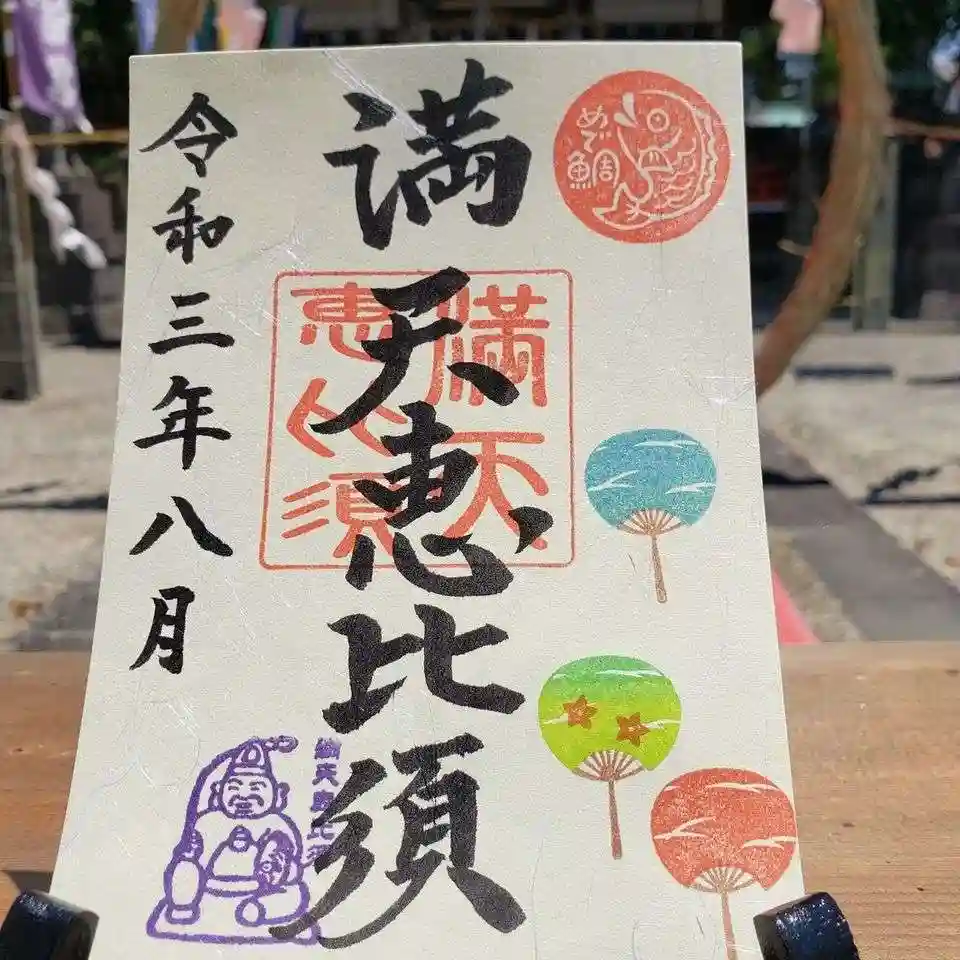 めで
鯛
満天恵比須
満天
恵比須
令和三年八月
満天恵比須